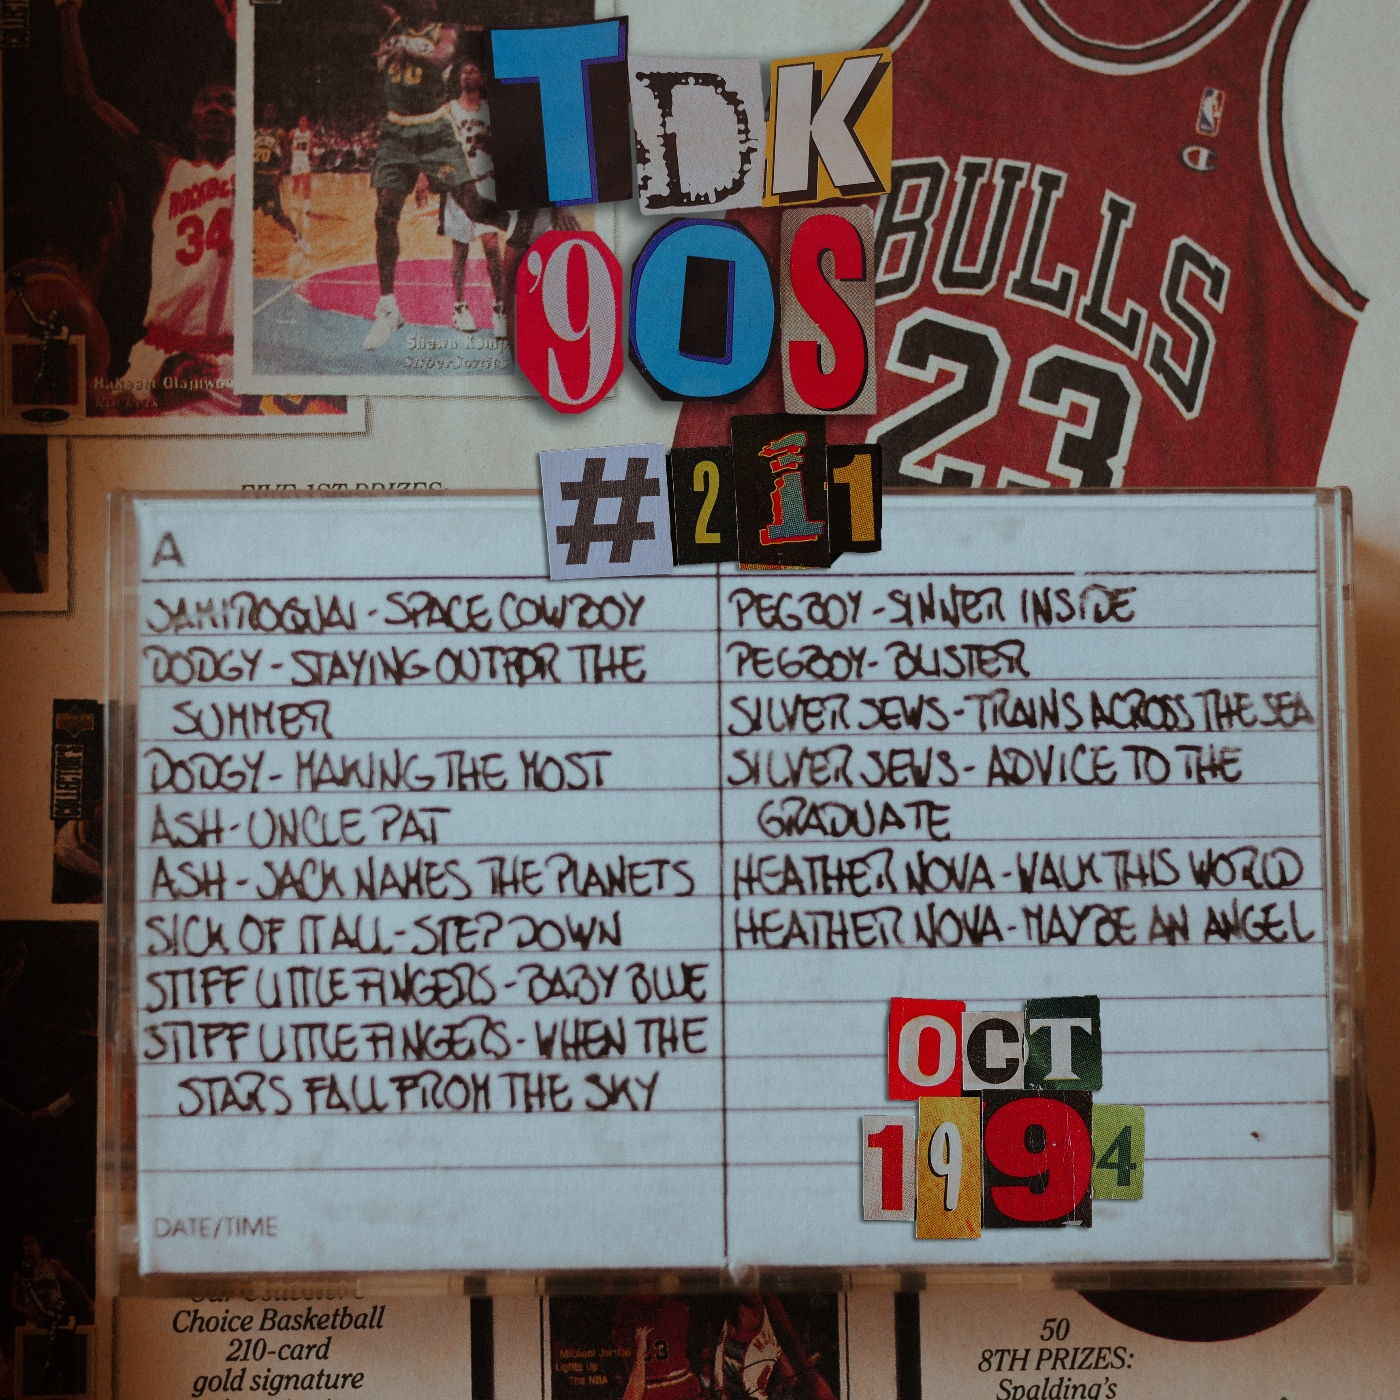 TDK
'90S
#211
ROCKETS
34
Shawn Kemp
BULLS
23
FIVE 1ST PRIZES
A
JAMIROQUAI - SPACE COWBOY
DODGY - STAYING OUT FOR THE
SUMMER
DODGY - MAKING THE MOST
ASH - UNCLE PAT
ASH - JACK NAMES THE PLANETS
SICK OF IT ALL - STEP DOWN
STIFF LITTLE FINGERS - BABY BLUE
STIFF LITTLE FINGERS - WHEN THE
STARS FALL FROM THE SKY
PEGBOY - SINNER INSIDE
PEGBOY - BLISTER
SILVER JEWS - TRAINS ACROSS THE SEA
SILVER JEWS - ADVICE TO THE
GRADUATE
HEATHER NOVA - WALK THIS WORLD
HEATHER NOVA - MAYBE AN ANGEL
OCT
1994
DATE/TIME
Choice Basketball
210-card
gold signature
Michael Jordan
Lights Up
The NBA
23
50
8TH PRIZES:
Spalding's